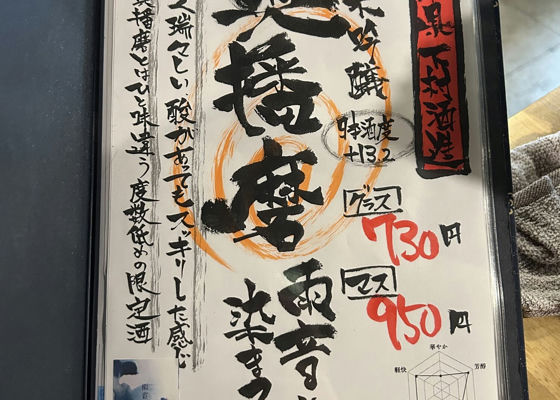 県 下村酒造
吟醸
日本酒度
+13.2
グラス
730円
マス
950円
奥播磨
雨音
染まる
瑞々しい酸があってもスッキリした感じ
奥播磨とはひと味違う度数低めの限定酒
華やか
軽快
芳醇